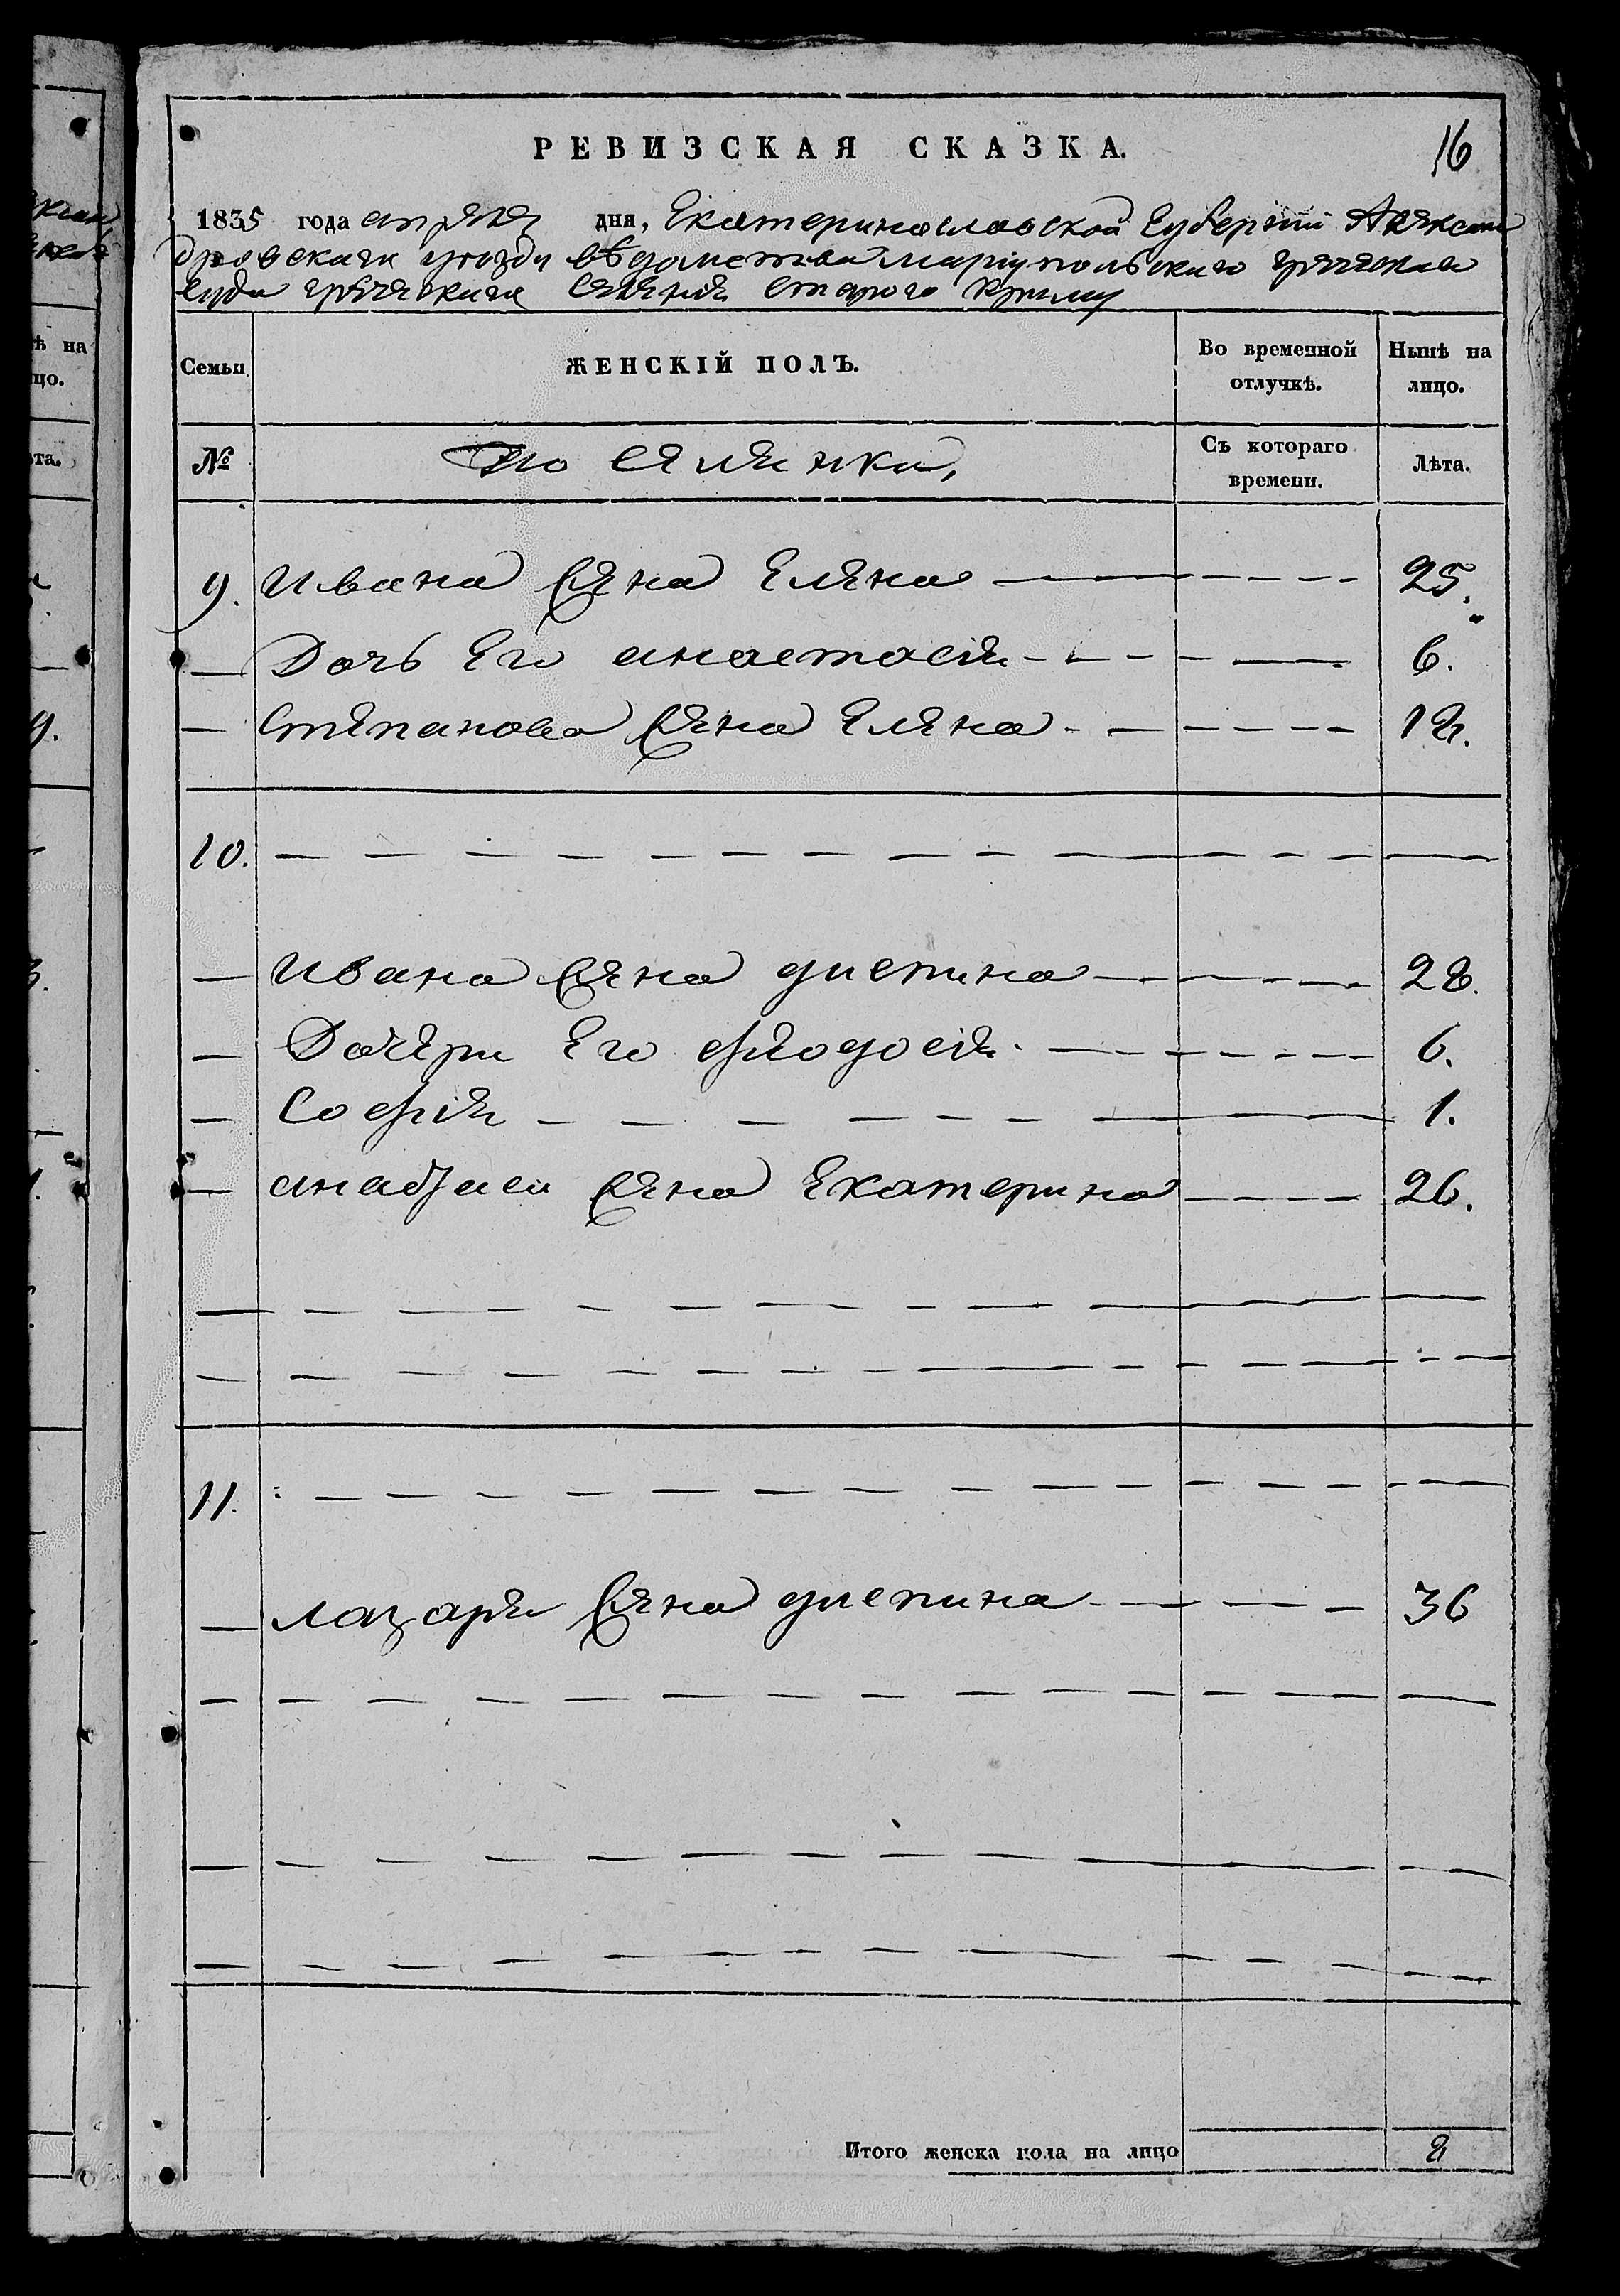 РЕВИЗСКАЯ СКАЗКА.
16
1835 года апреля дня, Екатеринославской Губернии Алексан
дровскаго уезда вѣдомства мариупольскаго греческаго
суда греческаго селения Старого Крыму
Семьи ЖЕНСКІЙ ПОЛЪ. Во временной отлучкѣ. Нынѣ на лицо.
№ Поселянки, Съ котораго времени. Лѣта.
9. Ивана жена Елена 25.
Дочь Его анастасия 6.
Степанова жена Елена
10.
Ивана жена 28.
Дочери Его феодосия 6.
София 1.
жена Екатерина 26.
11.
лазаря жена 36
Итого женска пола на лицо 8